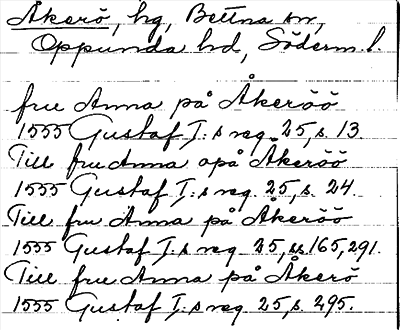 Åkerö, hg, Bettna sn,
Oppunda hd, Söderm. l.
fru Anna på Åkeröö
1555 Gustaf I:s reg. 25, s. 13.
Till fru Anna opå Åkeröö
1555 Gustaf I:s reg. 25, s. 24.
Till fru Anna på Åkeröö
1555 Gustaf I:s reg. 25, ss. 165, 291.
Till fru Anna på Åkerö
1555 Gustaf I:s reg. 25, s. 295.